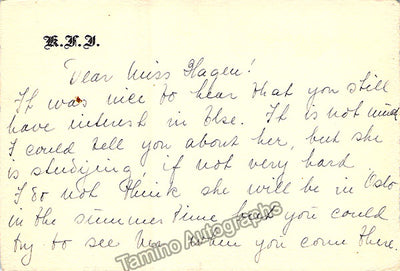 K.F.J.
Dear Miss Hagen!
It was nice to hear that you still
have interest in Else. It is not much
I could tell you about her, but she
is studying, if not very hard
I do not think she will be in Oslo
in the summer time, but you could
try to see her when you come there.
Tamino Autographs